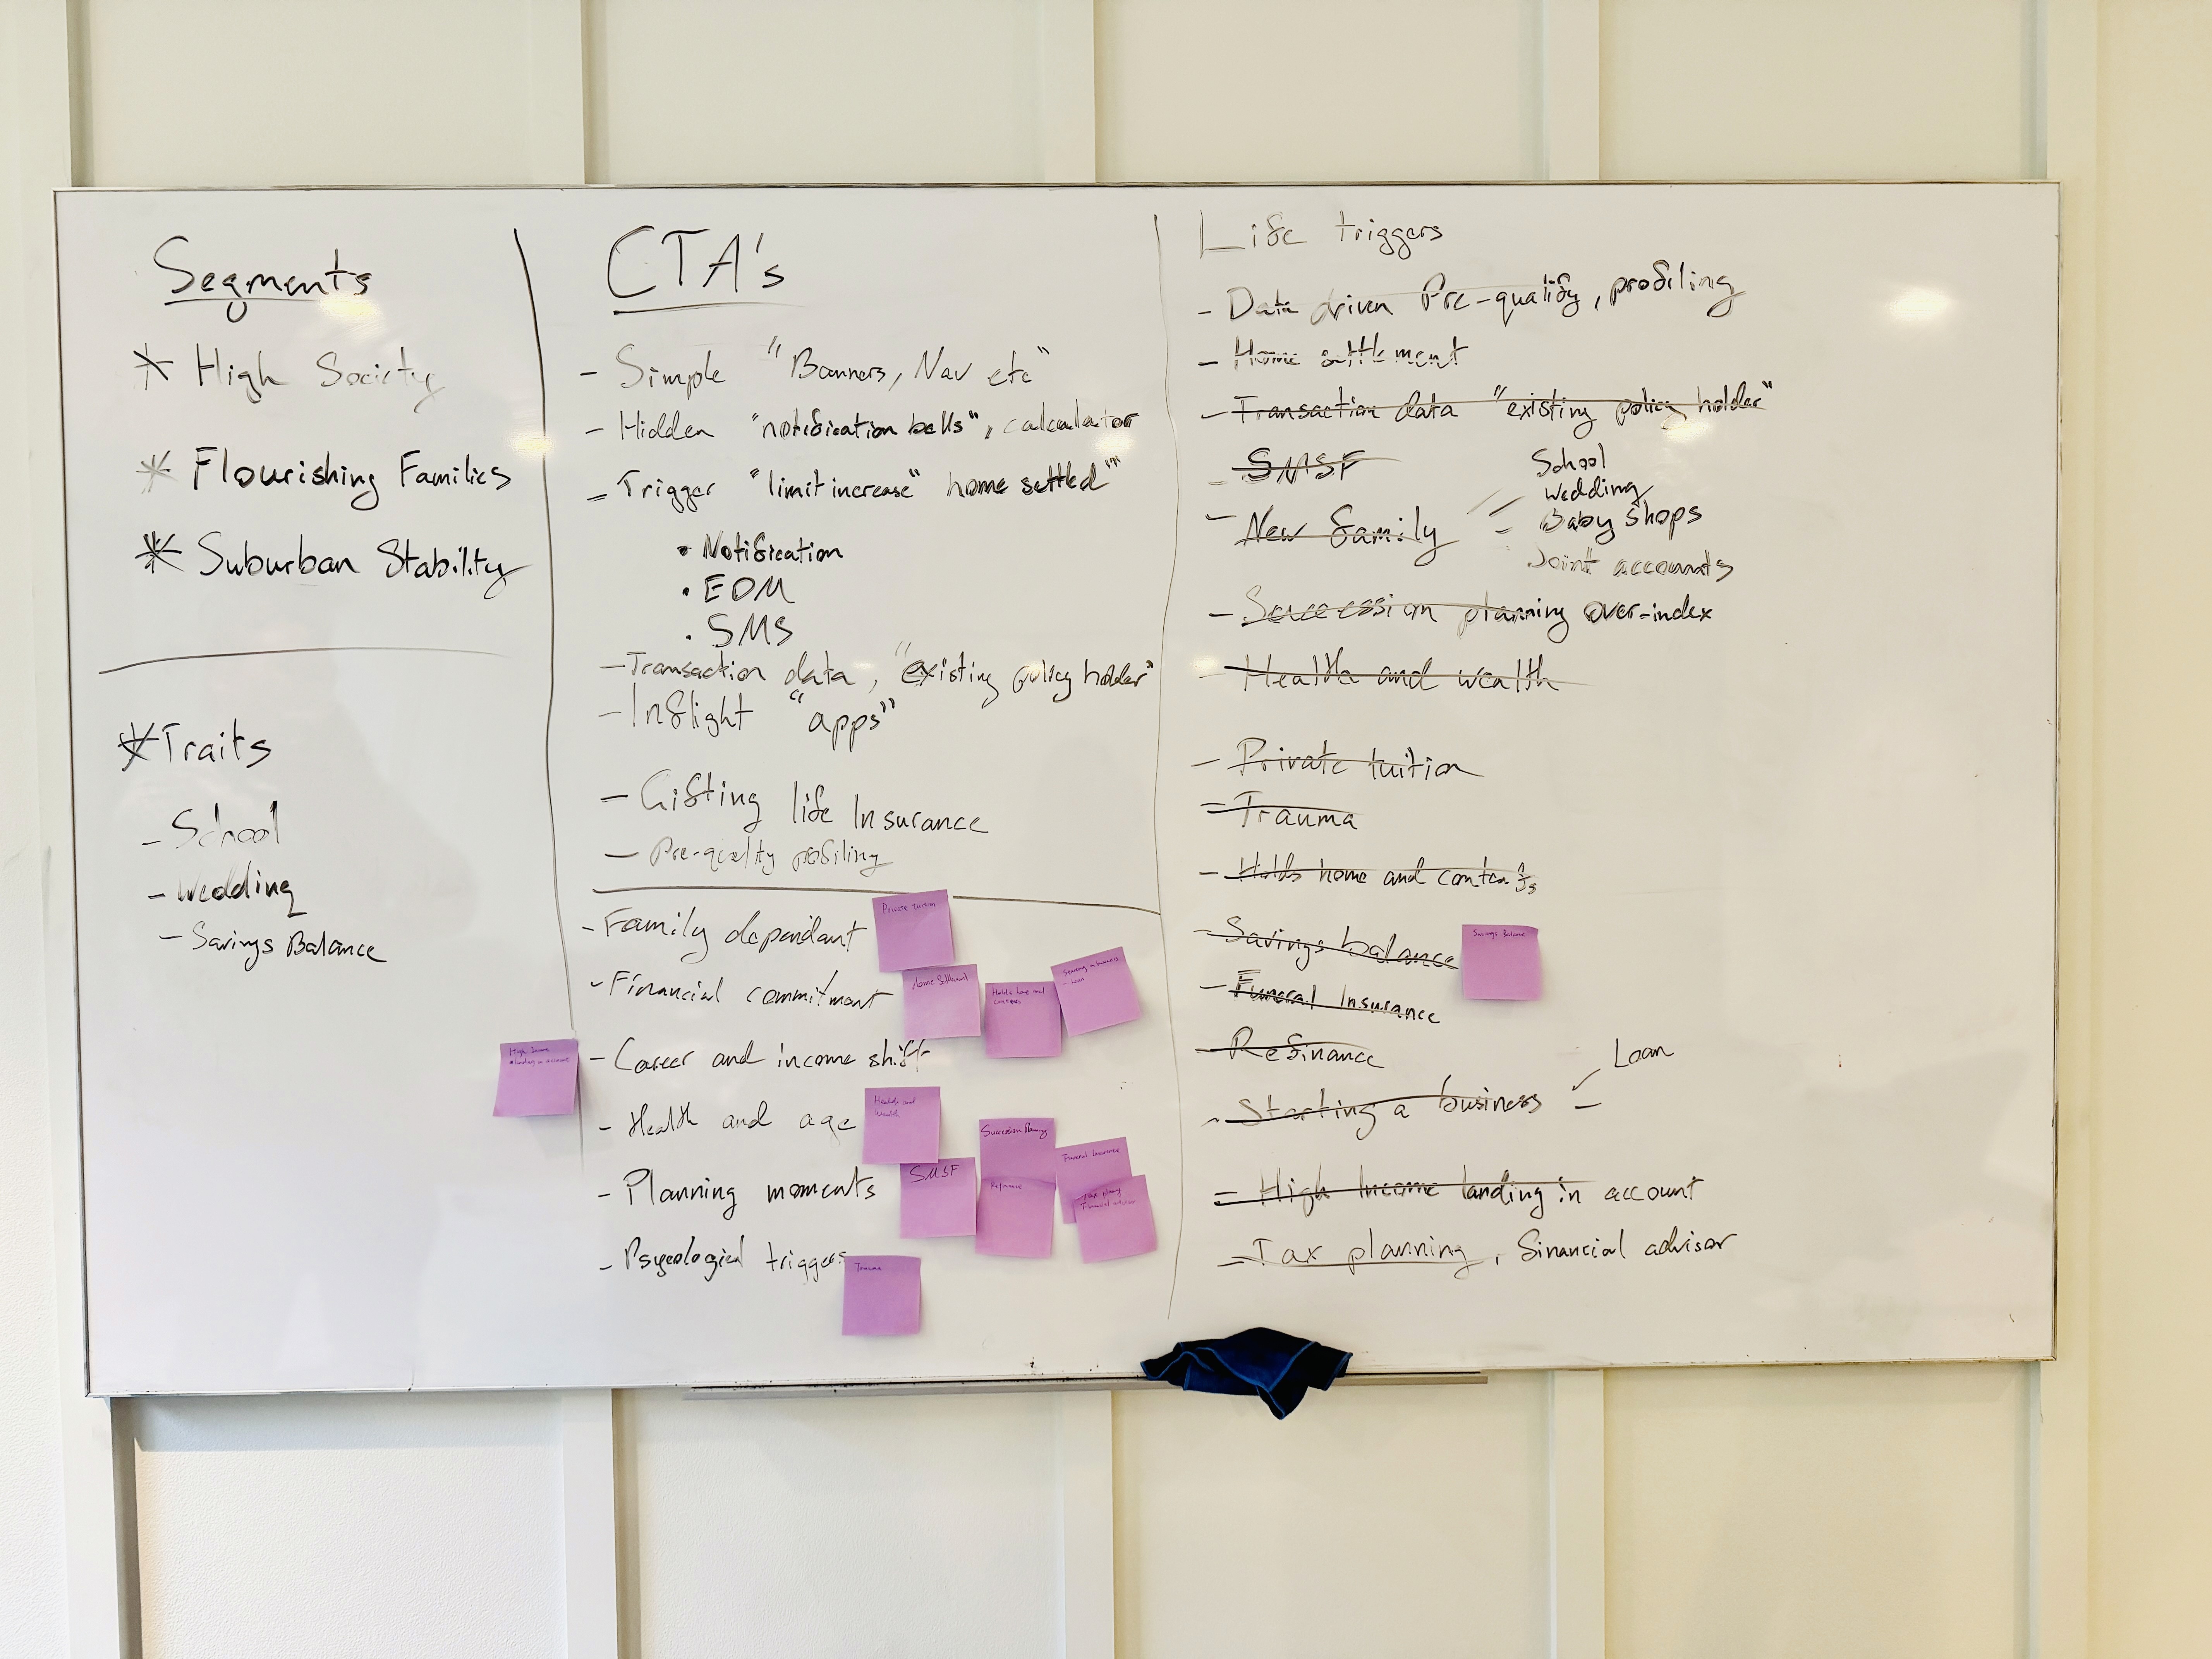 Segments
* High Society
* Flourishing Families
* Suburban Stability
* Traits
- School
- Wedding
- Savings Balance
CTA's
- Simple "Banners, Nav etc"
- Hidden "notification bells", calculator
- Trigger "limit increase" home settled"
• Notification
• EDM
• SMS
- Transaction data, "existing policy holder"
- Inflight "apps"
- Gifting life Insurance
- Pre-quality profiling
- Family dependant
Private tuition
- Financial commitment
Home Settlement
Holds home and
contents
Starting a business
- Loan
- Career and income shift
High Income
• landing in account
- Health and age
Health and
Wealth
- Planning moments
SMSF
Succession Planning
Refinance
Funeral Insurance
Tax planning
Financial advisor
- Psycological triggers
Trauma
Life triggers
- Data driven Pre-qualify, profiling
- Home settlement
- Transaction data "existing policy holder"
- SMSF
- New family
School
Wedding
- Baby shops
Joint accounts
- Succession planning over-index
- Health and wealth
- Private tuition
- Trauma
- Holds home and contents
- Savings balance
Savings Balance
- Funeral Insurance
- Refinance
- Starting a business -
Loan
- High Income landing in account
- Tax planning, financial advisor